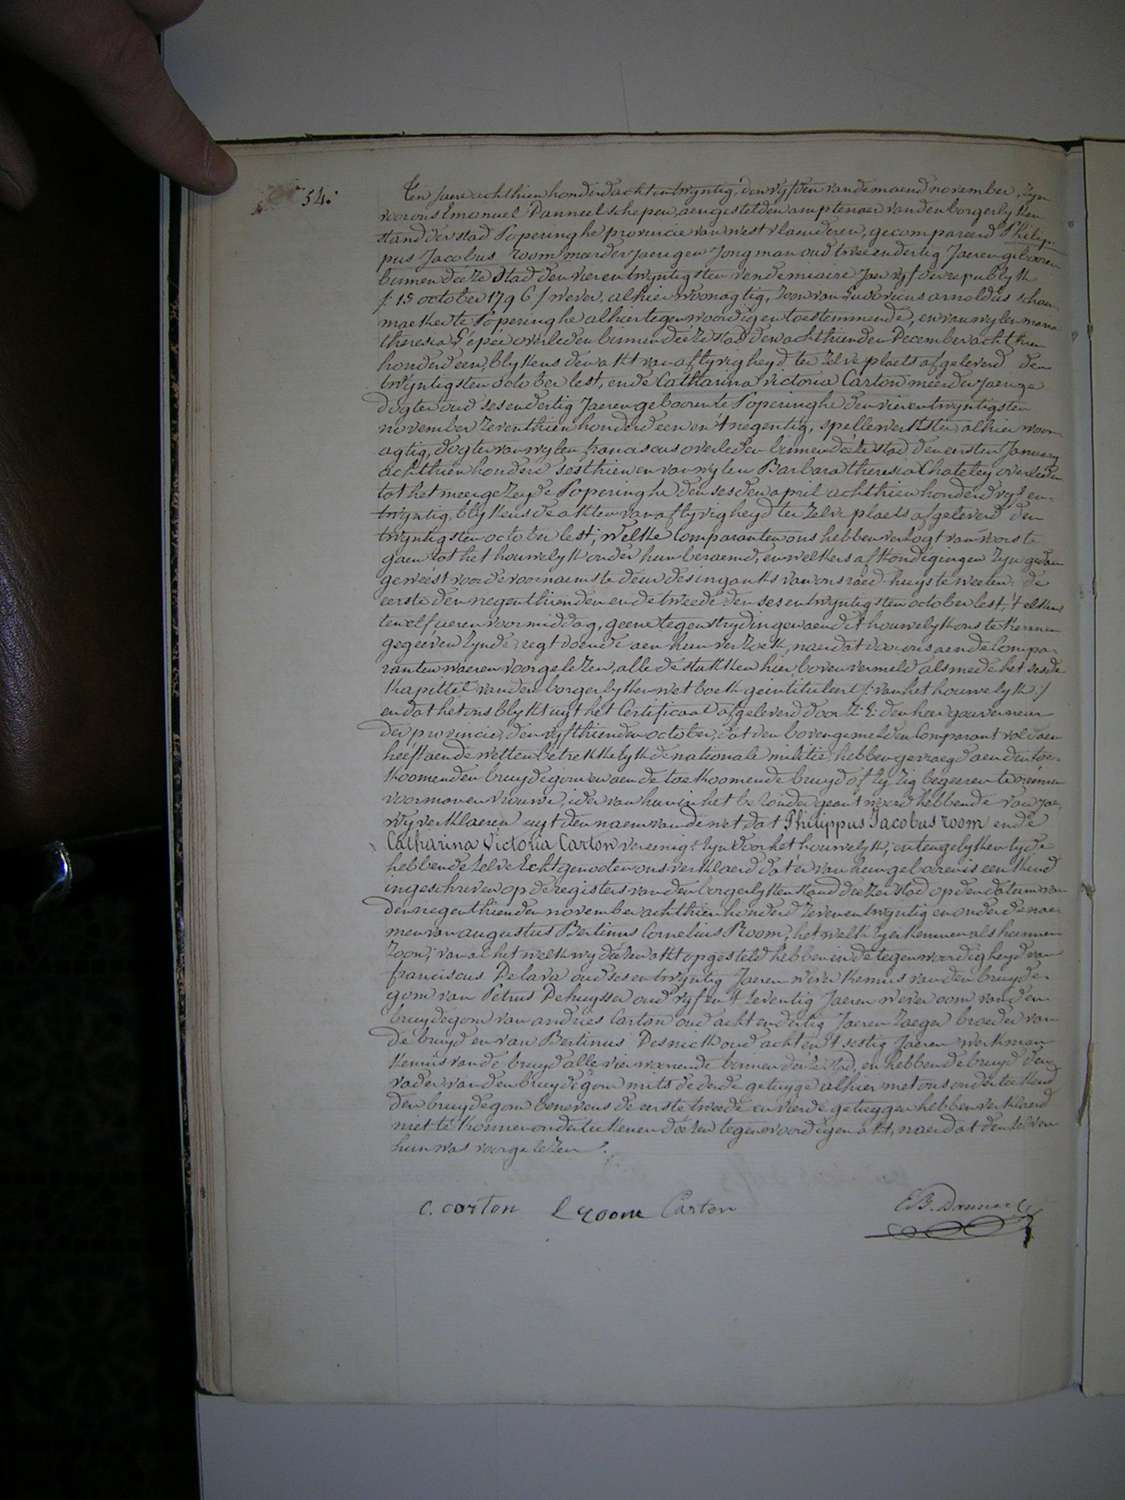 54:
Ten jaere achthien honderd acht en twyntig, den vyfden van de maend november, zyn
voor ons Emanuel Danneel schepen, aengestelden amptenaer van den borgerlyken
stand der stad Poperinghe provincie van west vlaenderen, gecompareerd Philip-
pus Jacobus room meerderjaerigen jongman oud twee endertig Jaeren geboren
binnen deze Stad den vierentwyntigsten vendemiaire Jaer vyf der republyk
/: 15 october 1796 / wever, alhier woonagtig, Zoon van Ludovicus arnoldus schoen
maeker te Poperinghe alhier tegenwoordig en toestemmende, en van wylen maria
theresia L'épée overleden binnen deze stad den achthienden December achthien
honderd een, blykens den akt van aflyvigheyd ter zelve plaets afgeleverd den
twyntigsten october lest, ende Catharina victoria Carton meerderjaerige
dogter oud sesendertig Jaeren geboren te Poperinghe den vierentwyntigsten
november zeventhien honderd een en 't negentig, spellewerkster, alhier woon-
agtig, dogter van wylen franciscus overleden binnen deze stad den eersten January
achthien honderd sesthien en van wylen Barbara theresia Chateley overleden
tot het meergezeyde Poperinghe den sesden april achthien honderd vyf en-
twyntig, blykens de akten van aflyvigheyd ter zelve plaets afgeleverd den
twyntigsten october lest; welke Comparanten ons hebben verzogt van voorts te
gaen tot het houwelyk onder hun beraemd, en welkers afkondigingen zyn gedaen
geweest voor de voornaemste deur des ingankx van ons raed-huys te weeten: de
eerste den negenthienden en de tweede den sesentwyntigsten october lest, 't elkens
ten elf ueren voormiddag, geene tegenstrydingen aen dit houwelyk ons te kennen
gegeeven zynde, regt doende aen hun verzoek, naer dat door ons aen de Compa-
ranten waeren voorgelezen, alle de stukken hier boven vermeld als mede het sesde
kapittel van den borgerlyken wet boek geintituleert /: van het houwelyk :/
en dat het ons blykt uyt het Certificaat afgeleverd door Z: E: den heer gouverneur
der provincie, den vyfthienden october, dat den bovengemelden Comparant voldaen
heeft aen de wetten betrekkelyk de nationale militie, hebben gevraegd aen den toe-
koomenden bruydegom en aen de toekoomende bruyd of zy zig begeeren te neemen
voor man en vrouwe, ider van hun in het bezonder geantwoord hebbende van jae,
wy verklaeren uyt den naem van de wet dat Philippus Jacobus room ende
Catharina Victoria Carton vereenigt zyn door het houwelyk, en ten gelyken tyde
hebben de zelve Echtgenooten ons verklaerd dat er van hun gebooren is een kind
ingeschreven op de registers van den borgerlyken stand dezer stad op den datum van
den negenthienden november achthien honderd zeven en twyntig en onder de nae-
men van augustus Bertinus Cornelius Room, het welk zy erkennen als hunnen
Zoon, van al het welk wy dezen akt opgesteld hebben in de tegenwoordigheyd van
franciscus Delava oud sesentwyntig Jaeren wever kennis van den bruyde-
gom van Petrus Dehuysser oud vyf en 't zeventig Jaeren wever oom van den
bruydegom van andries Carton oud acht endertig Jaeren zaeger broeder van
de bruyd en van Bertinus Desnick oud acht en 't sestig Jaeren werkman
kennis van de bruyd alle vier woonende binnen deze stad, en hebben de bruyd den
vader van den bruydegom mits de derde getuyge alhier met ons onderteekend
den bruydegom benevens de eerste tweede en vierde getuygen hebben verklaerd
niet te konnen onderteekenen dezen tegenwoordigen akt, naer dat den zelven
hun was voorgelezen /.
C. Carton L room Carton EB. Danneel